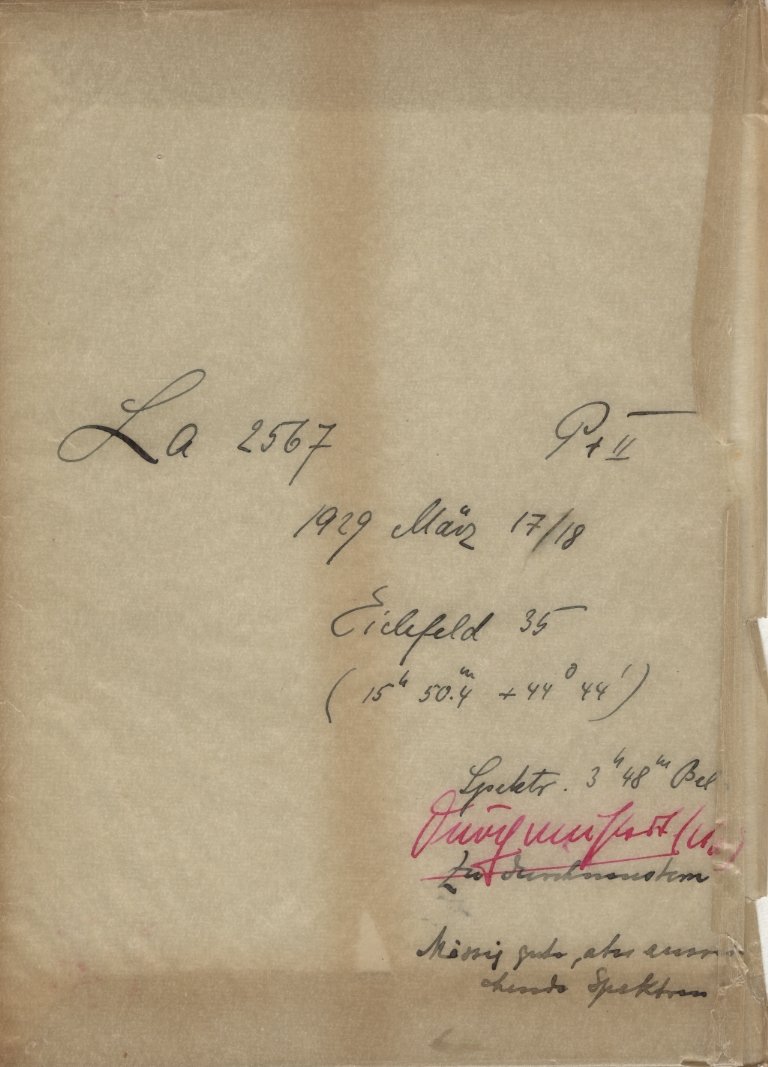 La 2567 P + II
1929 März 17/18
Eichfeld 35
(15ʰ 50.4ᵐ +44° 44')
Spektr. 3ʰ 48ᵐ Bel
Durchmustert
Zu durchmustern
Mässig gute, aber ausrei
chende Spektren